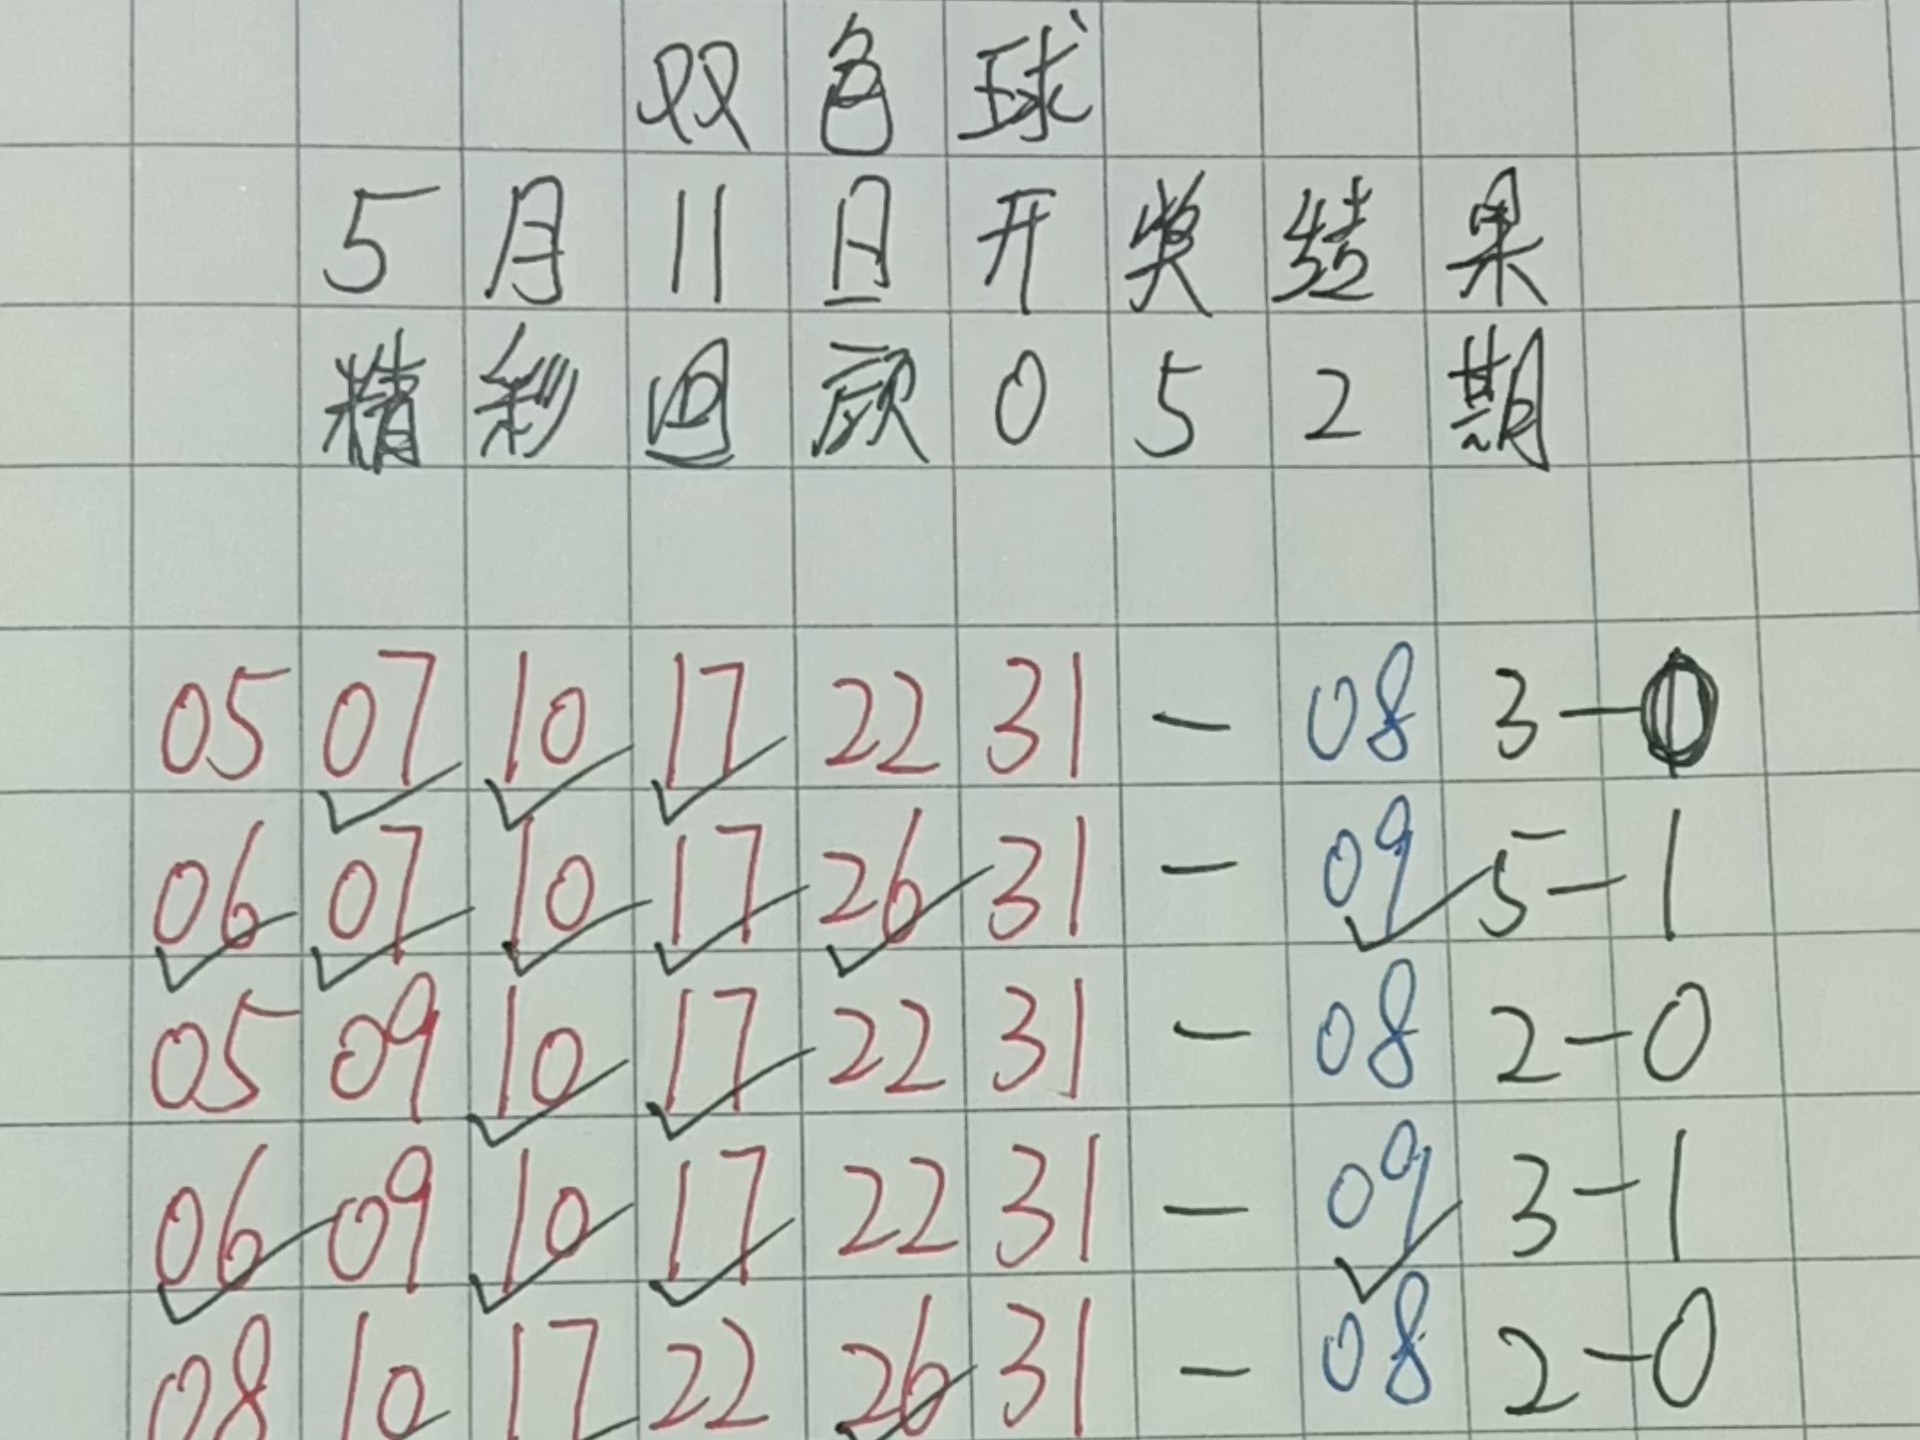 双色球
5月11日开奖结果
精彩回顾052期
05 07 10 17 22 31 — 08 3—0
06 07 10 17 26 31 — 09 5—1
05 09 10 17 22 31 — 08 2—0
06 09 10 17 22 31 — 09 3—1
08 10 17 22 26 31 — 08 2—0